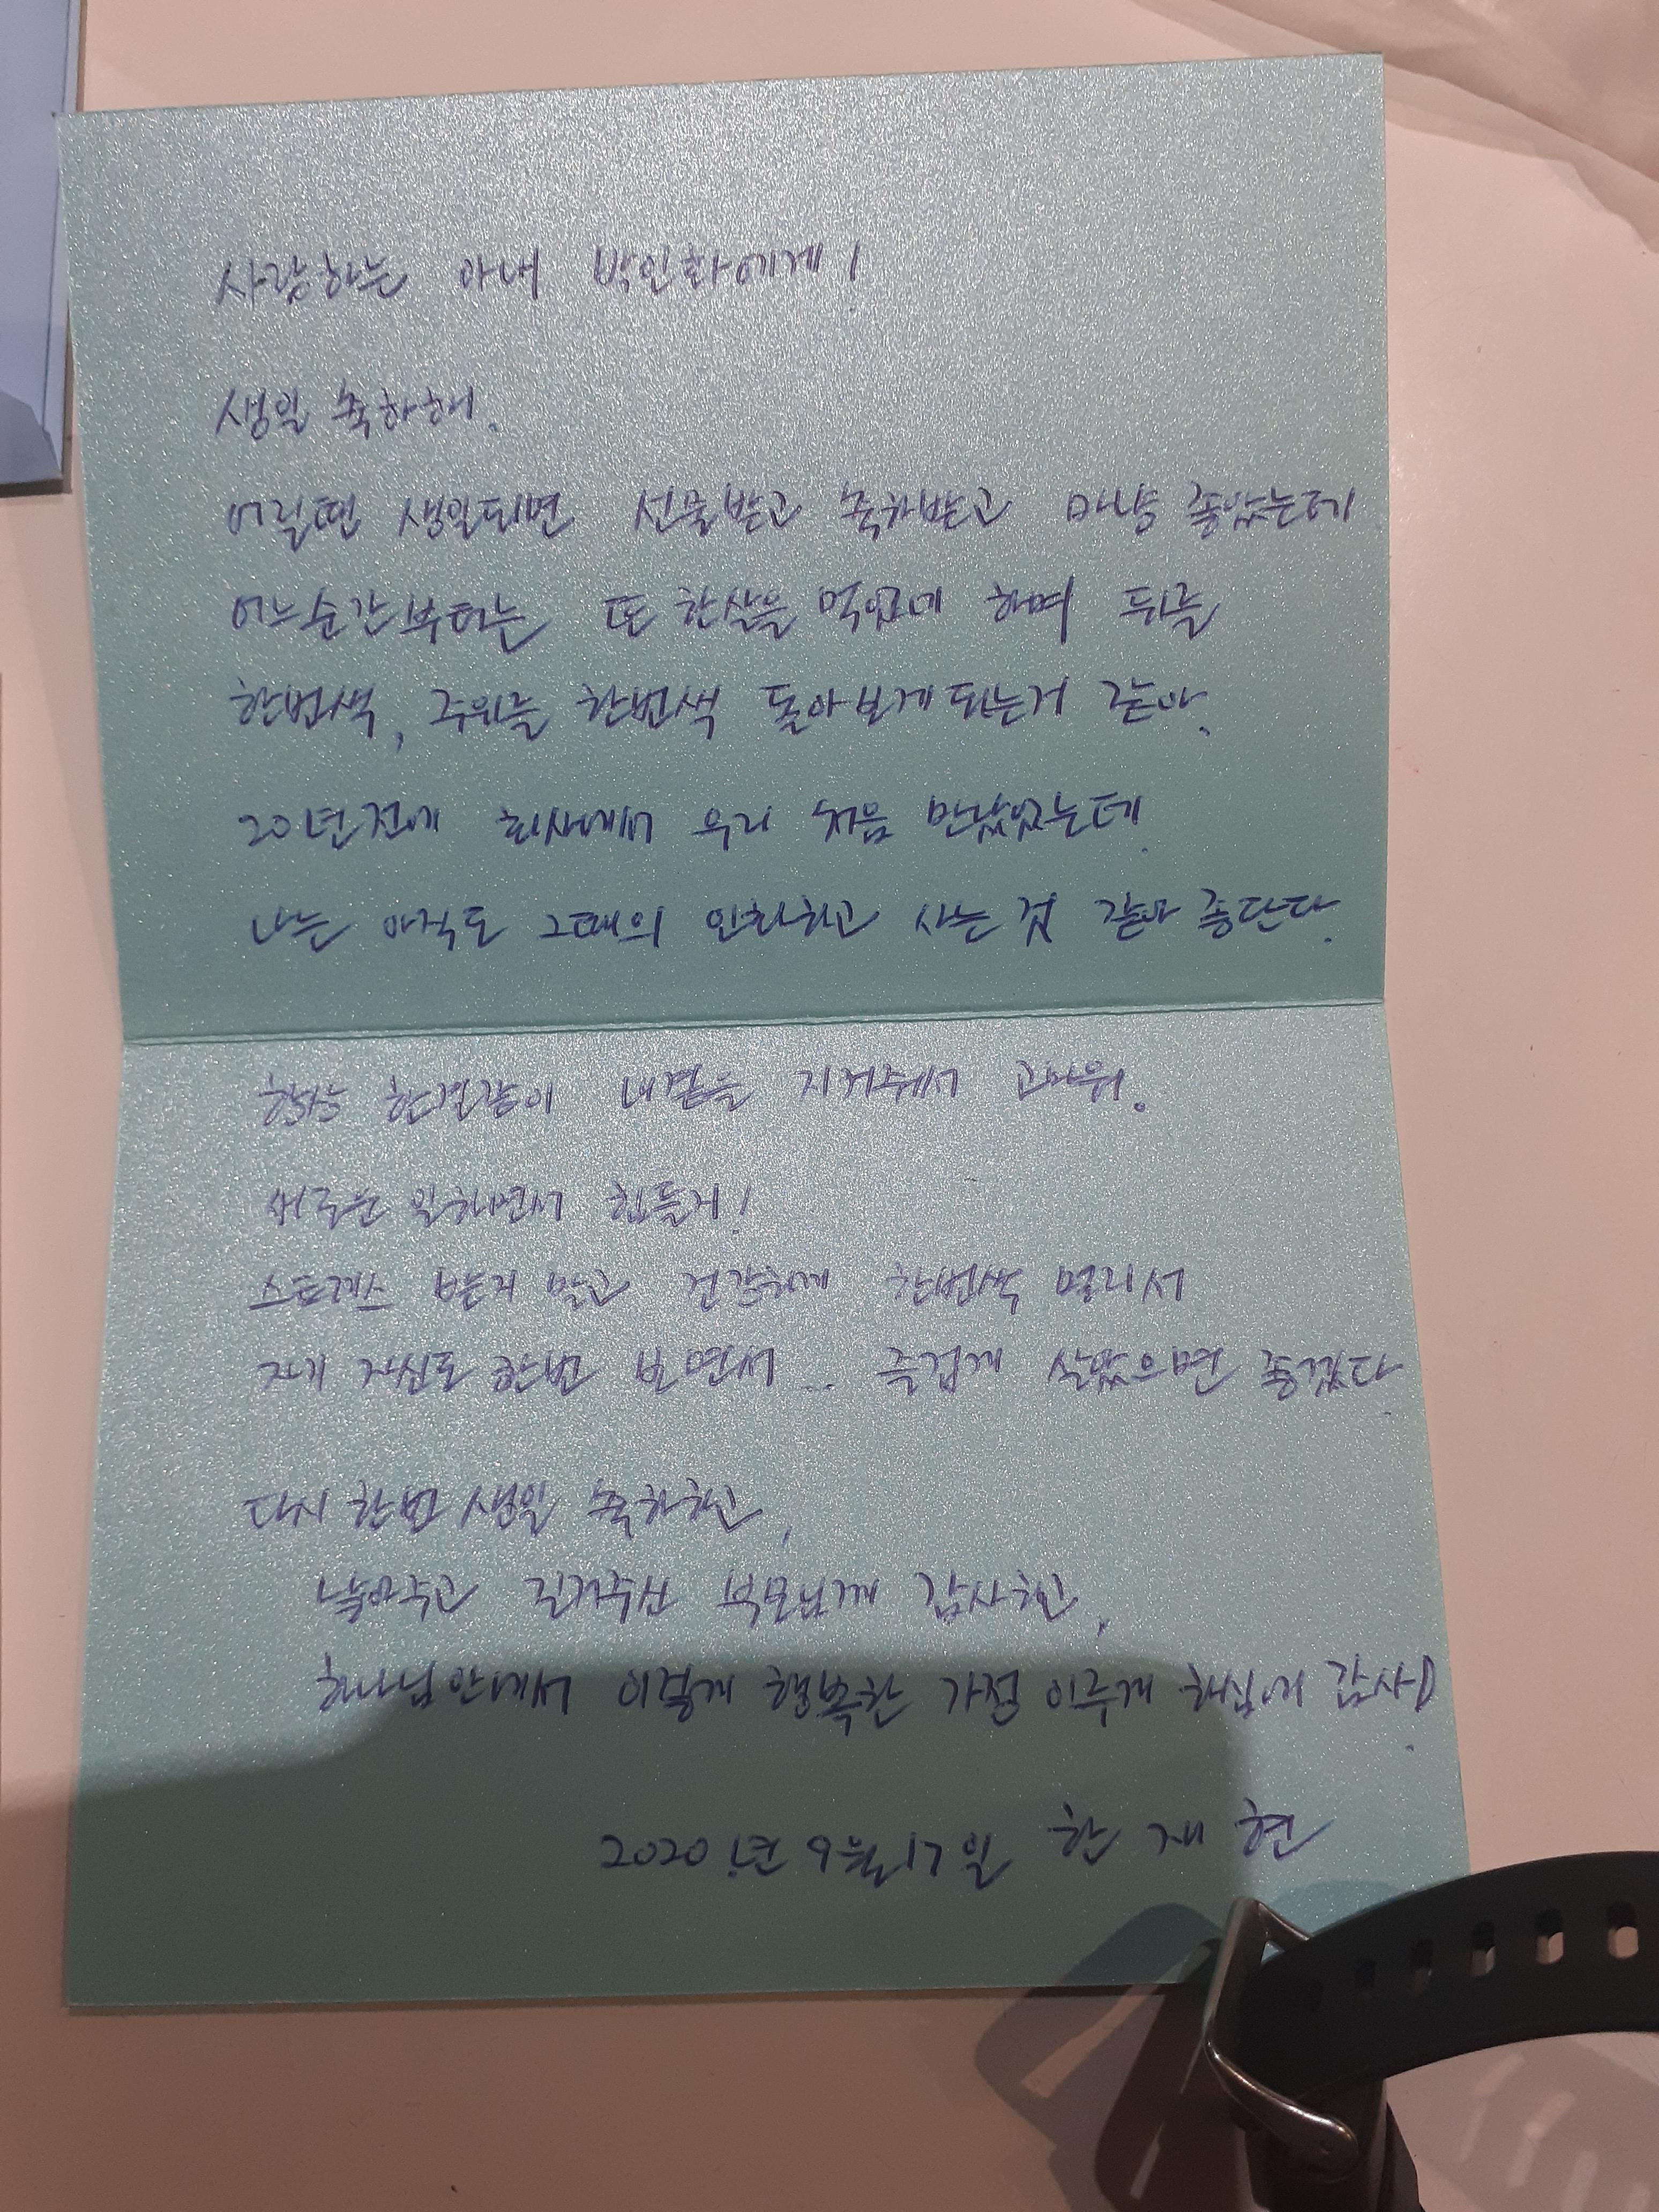 사랑하는 아내 박인화에게!
생일 축하해.
어릴땐 생일되면 선물받고 축하받고 마냥 좋았는데
어느순간부터는 또 한살을 먹었네 하며 뒤를
한번색, 주위를 한번색 돌아보게 되는거 같아.
20년전에 회사에서 우리 처음 만났었는데
나는 아직도 그때의 인화하고 사는 것 같아 좋단다.
항상 한결같이 내곁을 지켜줘서 고마워.
새로운 일하면서 힘들지!
스트레스 받지 말고 건강하게 한번색 멀리서
자기 자신도 한번 보면서... 즐겁게 살았으면 좋겠다.
다시 한번 생일 축하하고,
낳아주고 길러주신 부모님께 감사하고,
하나님안에서 이렇게 행복한 가정 이루게 하심에 감사
2020년 9월 17일 한재현